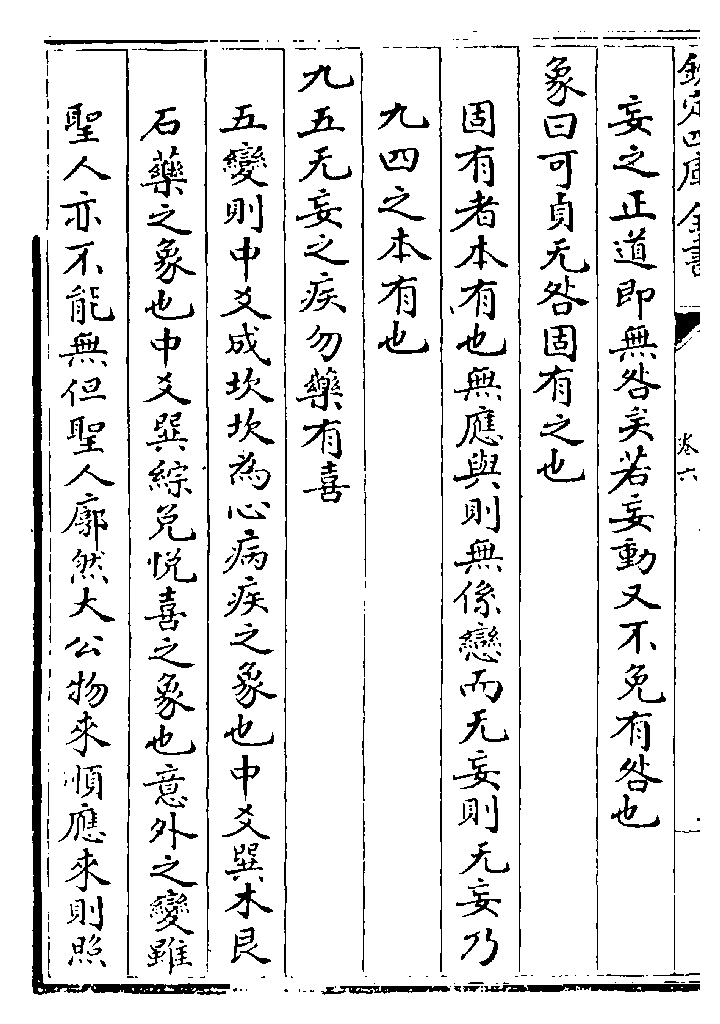 欽定四庫全書
卷六
妄之正道即無咎矣若妄動又不免有咎也
象曰可貞无咎固有之也
固有者本有也無應與則無係戀而无妄則无妄乃
九四之本有也
九五无妄之疾勿藥有喜
五變則中爻成坎坎為心病疾之象也中爻巽木艮
石藥之象也中爻巽綜兌悅喜之象也意外之變雖
聖人亦不能無但聖人廓然大公物來順應來則照